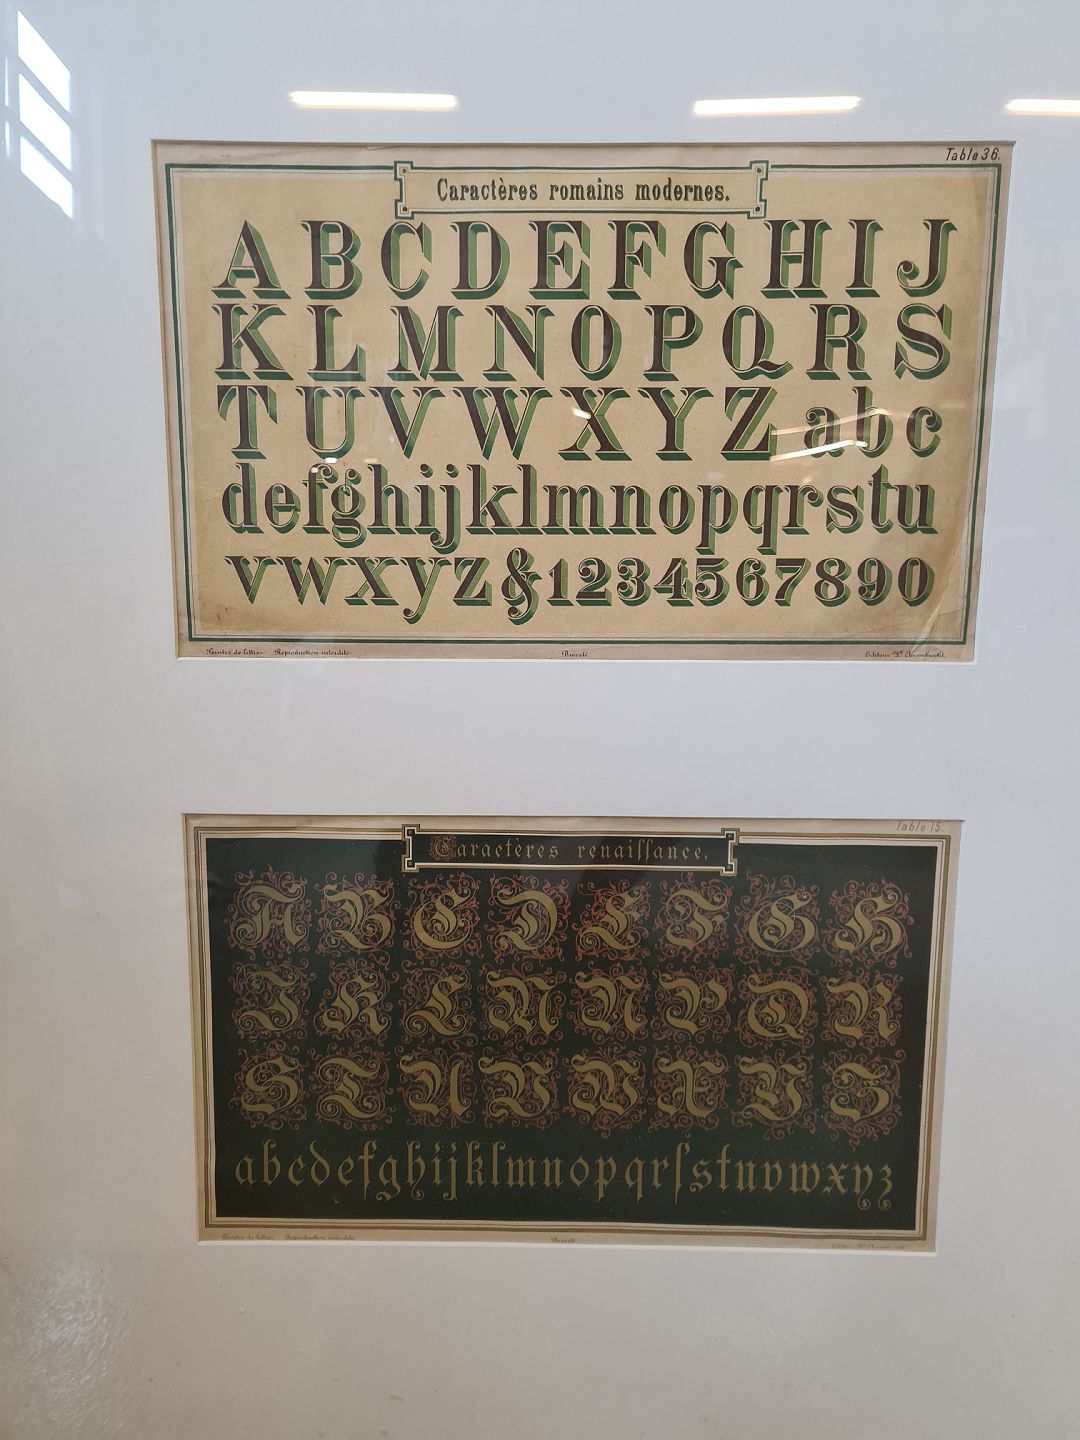 Table 36.
Caractères romains modernes.
A B C D E F G H I J
K L M N O P Q R S
T U V W X Y Z a b c
d e f g h i j k l m n o p q r s t u
v w x y z & 1 2 3 4 5 6 7 8 9 0
Peintre de lettres. Reproduction interdite.
Brèveté.
Editeur
Table 15.
Caractères renaiſſance.
A B C D E F G H
I K L M N P Q R
S T U V W X Y Z
a b c d e f g h i j k l m n o p q r ſ s t u v w x y z
Peintre de lettres. Reproduction interdite.
Brèveté.